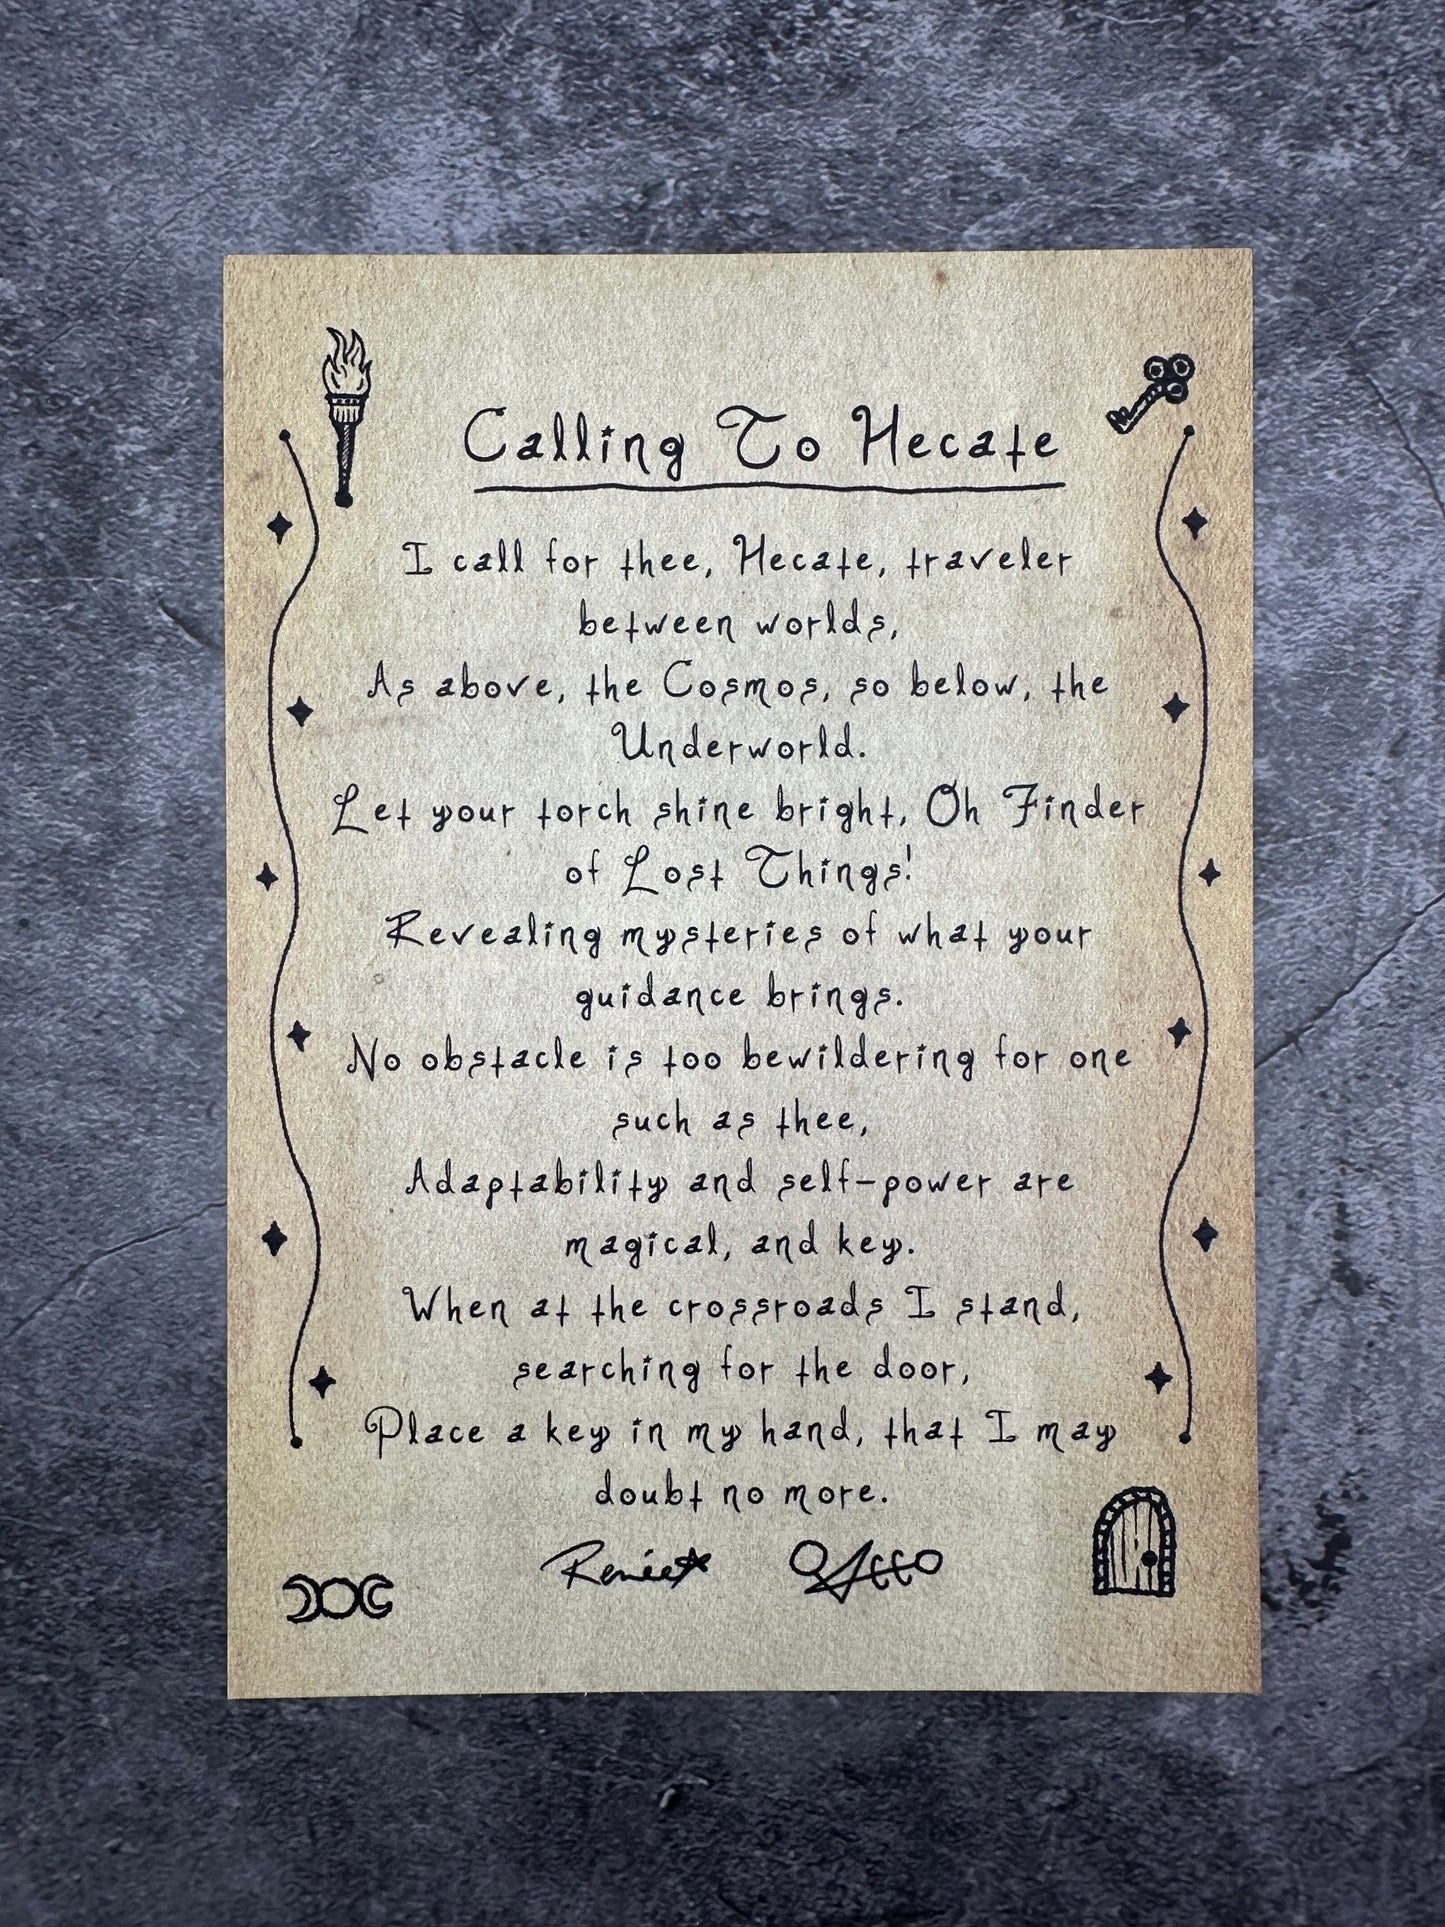 Calling To Hecate
I call for thee, Hecate, traveler
between worlds,
As above, the Cosmos, so below, the
Underworld.
Let your torch shine bright, Oh Finder
of Lost Things!
Revealing mysteries of what your
guidance brings.
No obstacle is too bewildering for one
such as thee,
Adaptability and self-power are
magical, and key.
When at the crossroads I stand,
searching for the door,
Place a key in my hand, that I may
doubt no more.
Renée